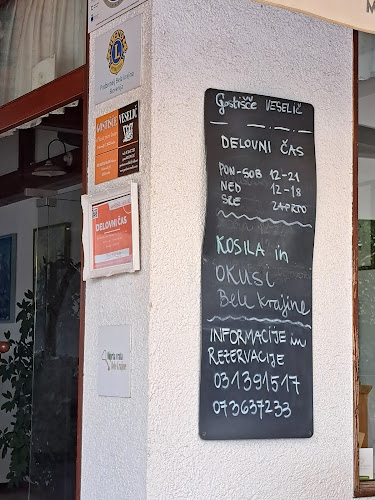 Gostišče VESELIČ
DELOVNI ČAS
PON-SOB 12-21
NED 12-18
SRE ZAPRTO
KOSILA in
OKUSI
Bele krajine
INFORMACIJE in
REZERVACIJE
031391517
073637233
GOSTIŠČE VESELIČ
DELOVNI ČAS